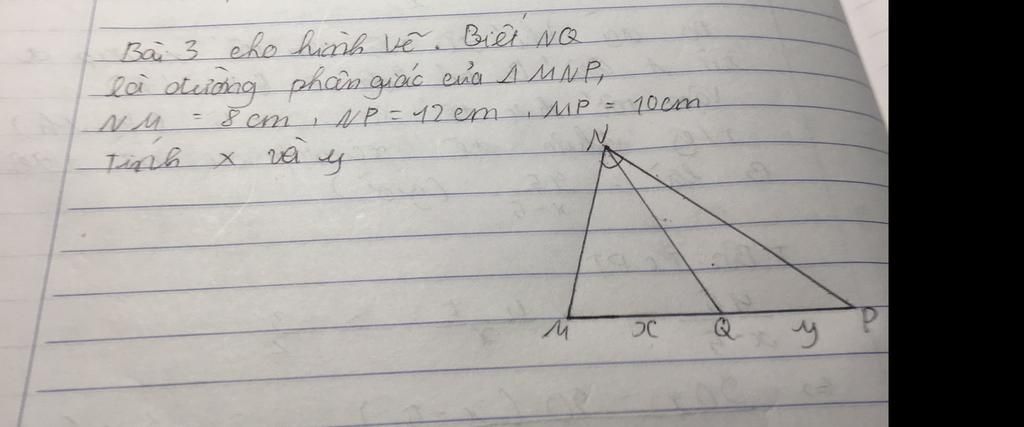 Bài 3 cho hình vẽ. Biết NQ
là đường phân giác của Δ MNP,
NM = 8 cm, NP = 12 cm, MP = 10cm
Tính x và y
N
M x Q y P